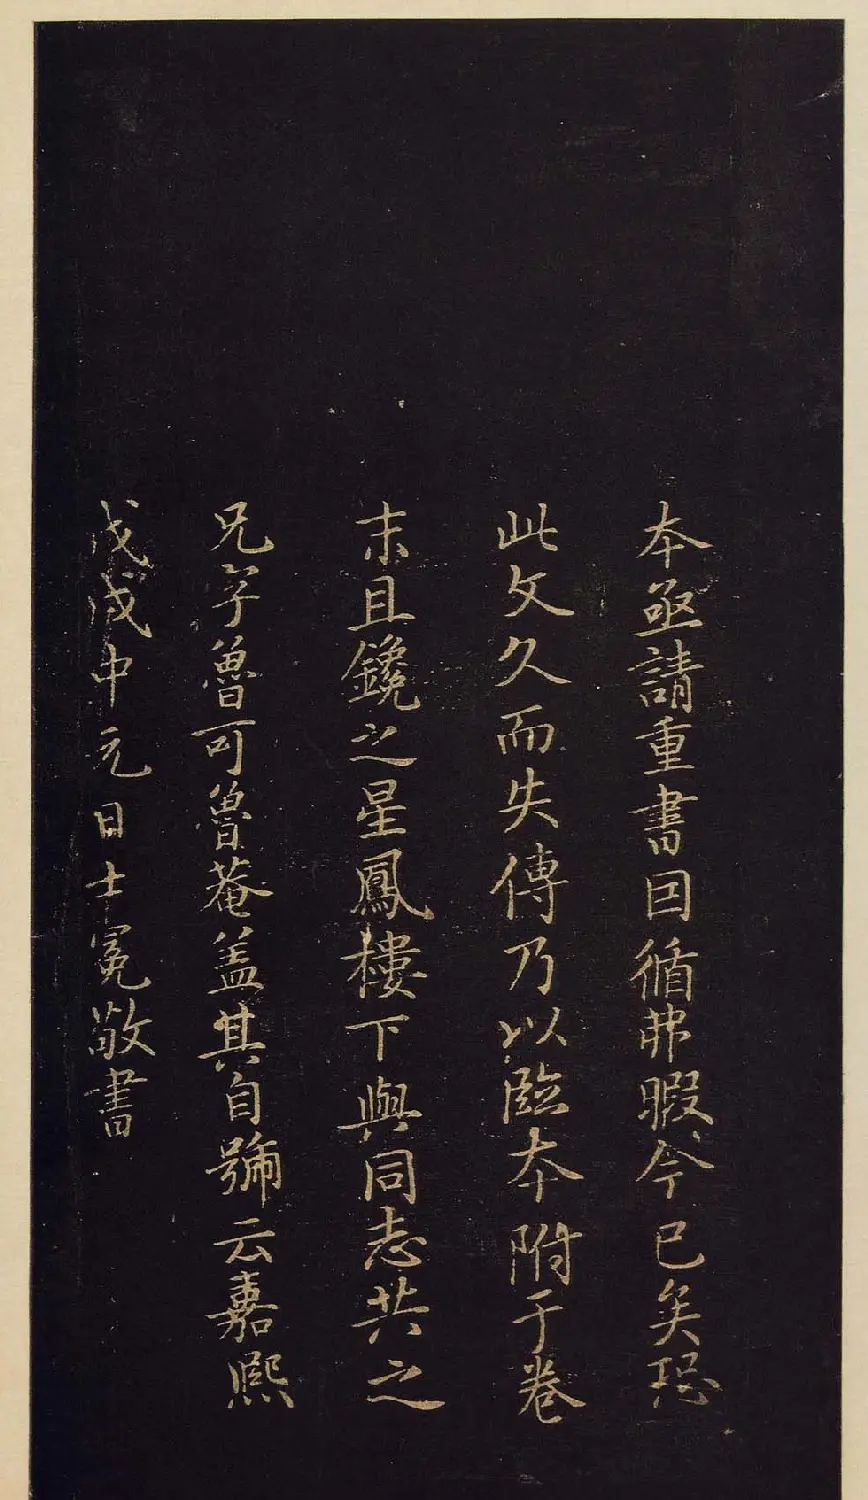 本亟請重書囙循弗暇今已矣恐
此文久而失傳乃以臨本附于卷
末且鑱之星鳳樓下與同志共之
兄字魯可魯菴盖其自號云嘉熙
戊戌中元日士冕敬書